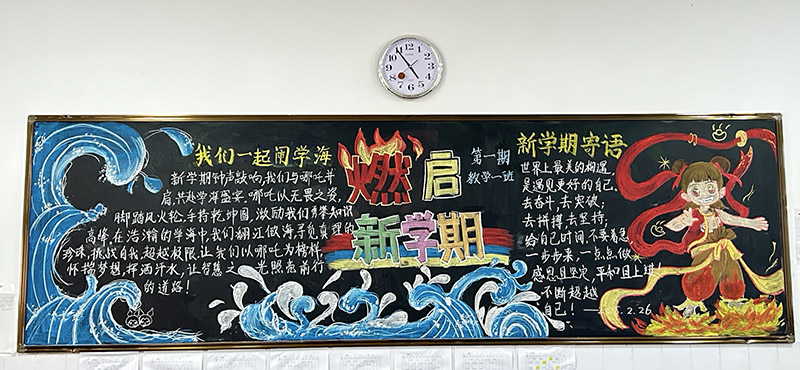 我们一起闹学海
新学期钟声敲响,我们与哪吒并
启,共赴学海盛宴。哪吒以无畏之姿,
脚踏风火轮,手持乾坤圈,激励我们勇攀知识
高峰。在浩瀚的学海中,我们翻江倒海,寻觅真理的
珍珠,挑战自我,超越极限。让我们以哪吒为榜样,
怀揣梦想,挥洒汗水,让智慧之光照亮前行
的道路!
燃启
新学期
第一期
教学一班
新学期寄语
世界上最美的相遇
是遇见更好的自己,
去奋斗,去突破,
去拼搏去坚持;
给自己时间,不要着急
一步步来,一点点做
感恩且坚定,平和且上进!
不断超越
自己!
2.26
12
1
2
3
4
5
6
7
8
9
10
11